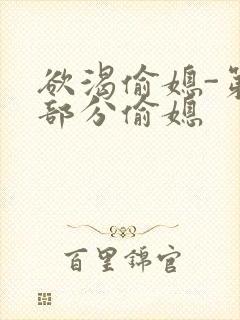 欲渴偷媳-第
部分偷媳
百里锦官